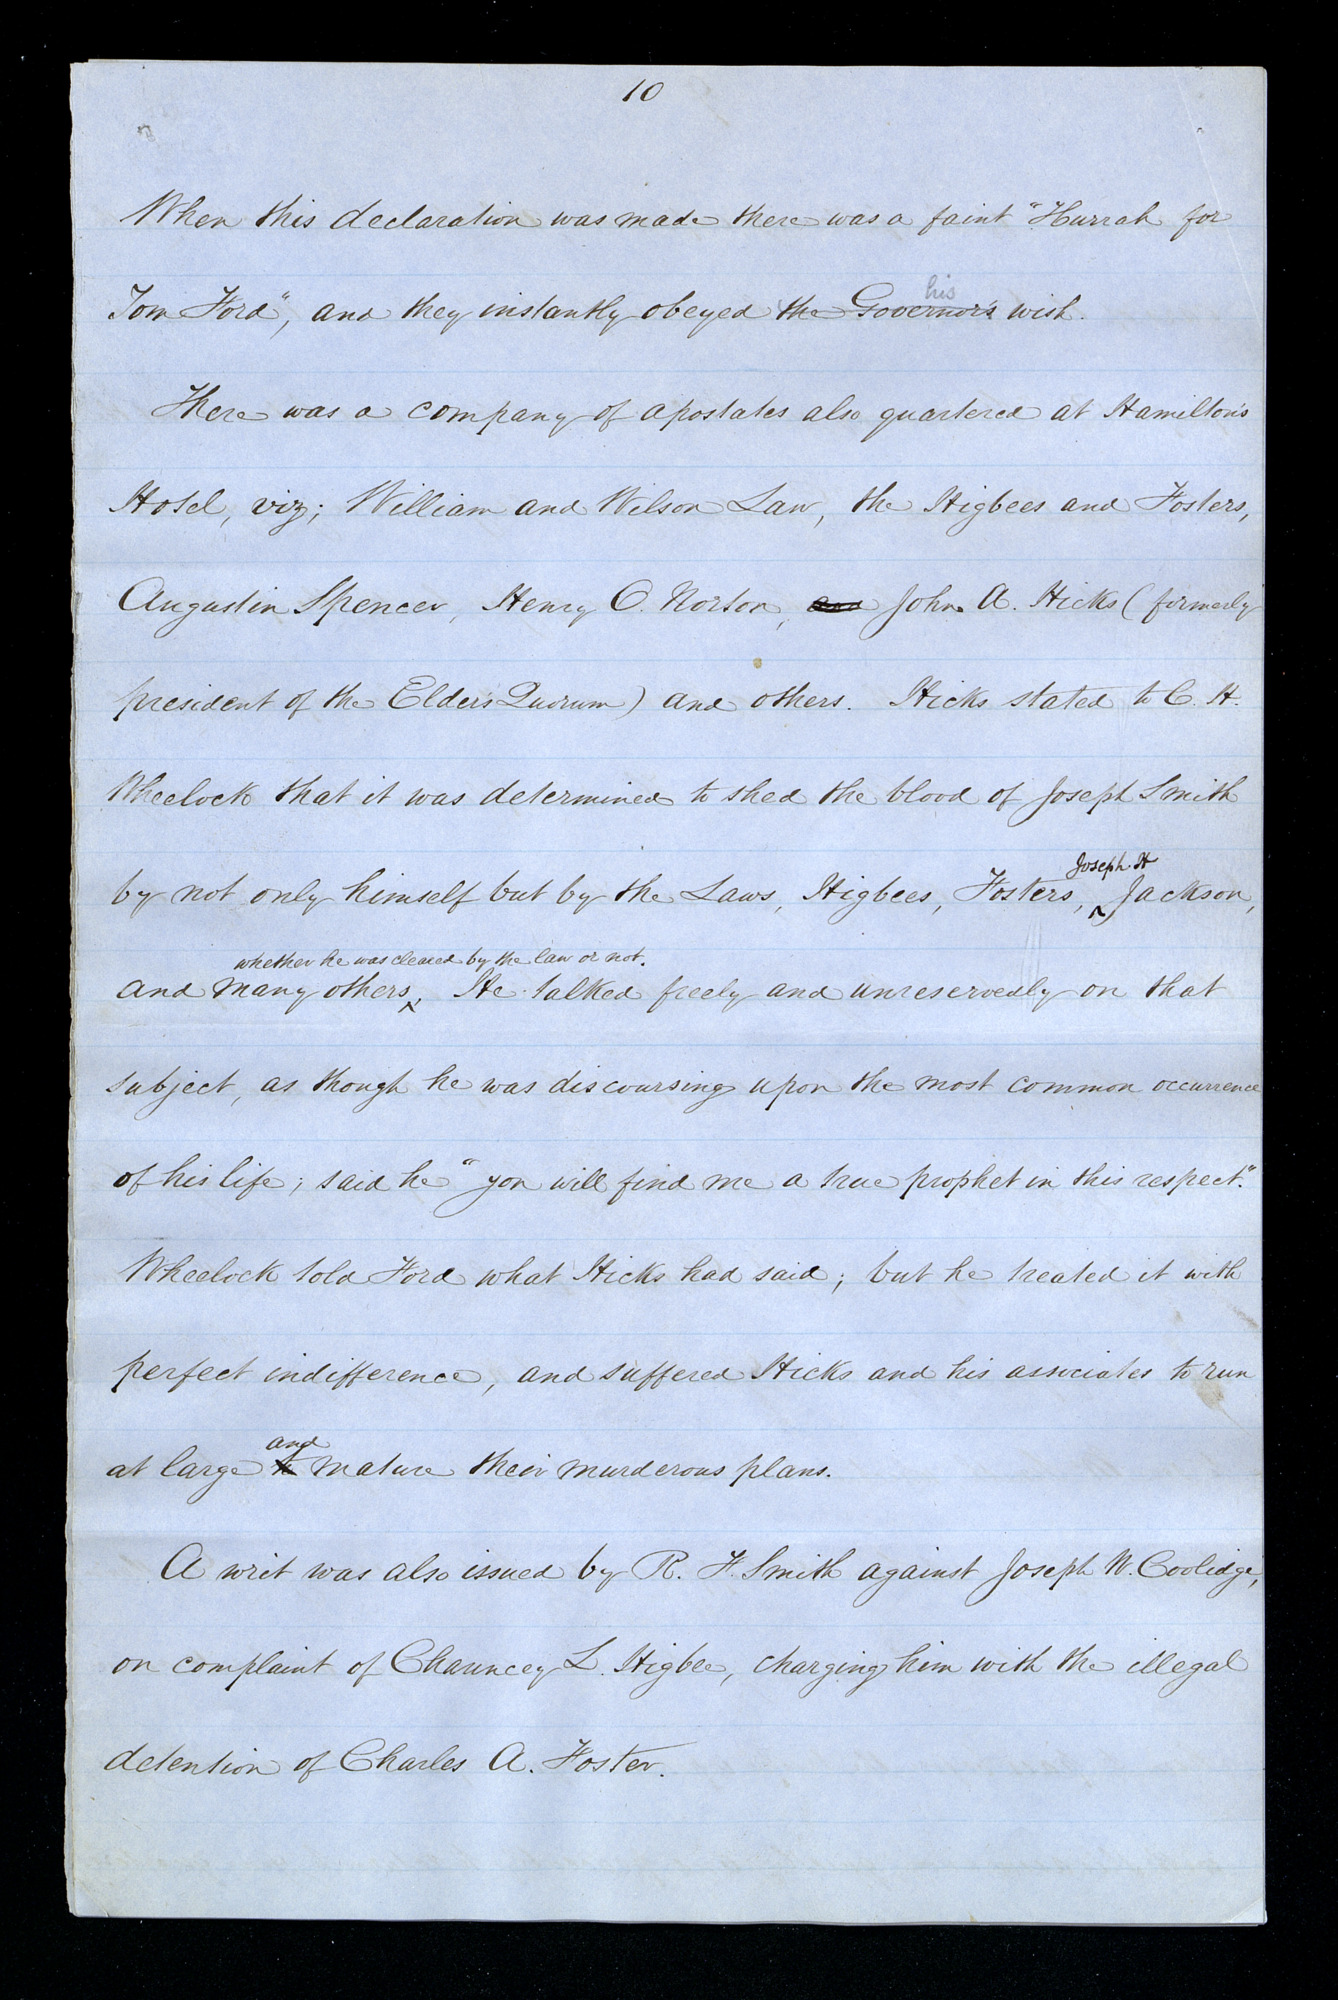 10
When this declaration was made there was a faint "Hurrah for
his
Tom Ford", and they instantly obeyed the Governor's wish.
There was a company of apostates also quartered at Hamilton's
Hotel, viz; William and Wilson Law, the Higbees and Fosters,
Augustin Spencer, Henry O. Norton, and John A. Hicks (formerly
president of the Elder's Quorum) and others. Hicks stated to C. H.
Wheelock that it was determined to shed the blood of Joseph Smith
Joseph H
by not only himself but by the Laws, Higbees, Fosters, ^ Jackson,
whether he was cleared by the law or not.
and many others, ^ He talked freely and unreservedly on that
subject, as though he was discoursing upon the most common occurrence
of his life; said he "you will find me a true prophet in this respect."
Wheelock told Ford what Hicks had said; but he treated it with
perfect indifference, and suffered Hicks and his associates to run
and
at large to mature their murderous plans.
A writ was also issued by R. F. Smith against Joseph W. Coolidge,
on complaint of Chauncey L. Higbee, charging him with the illegal
detention of Charles A. Foster.